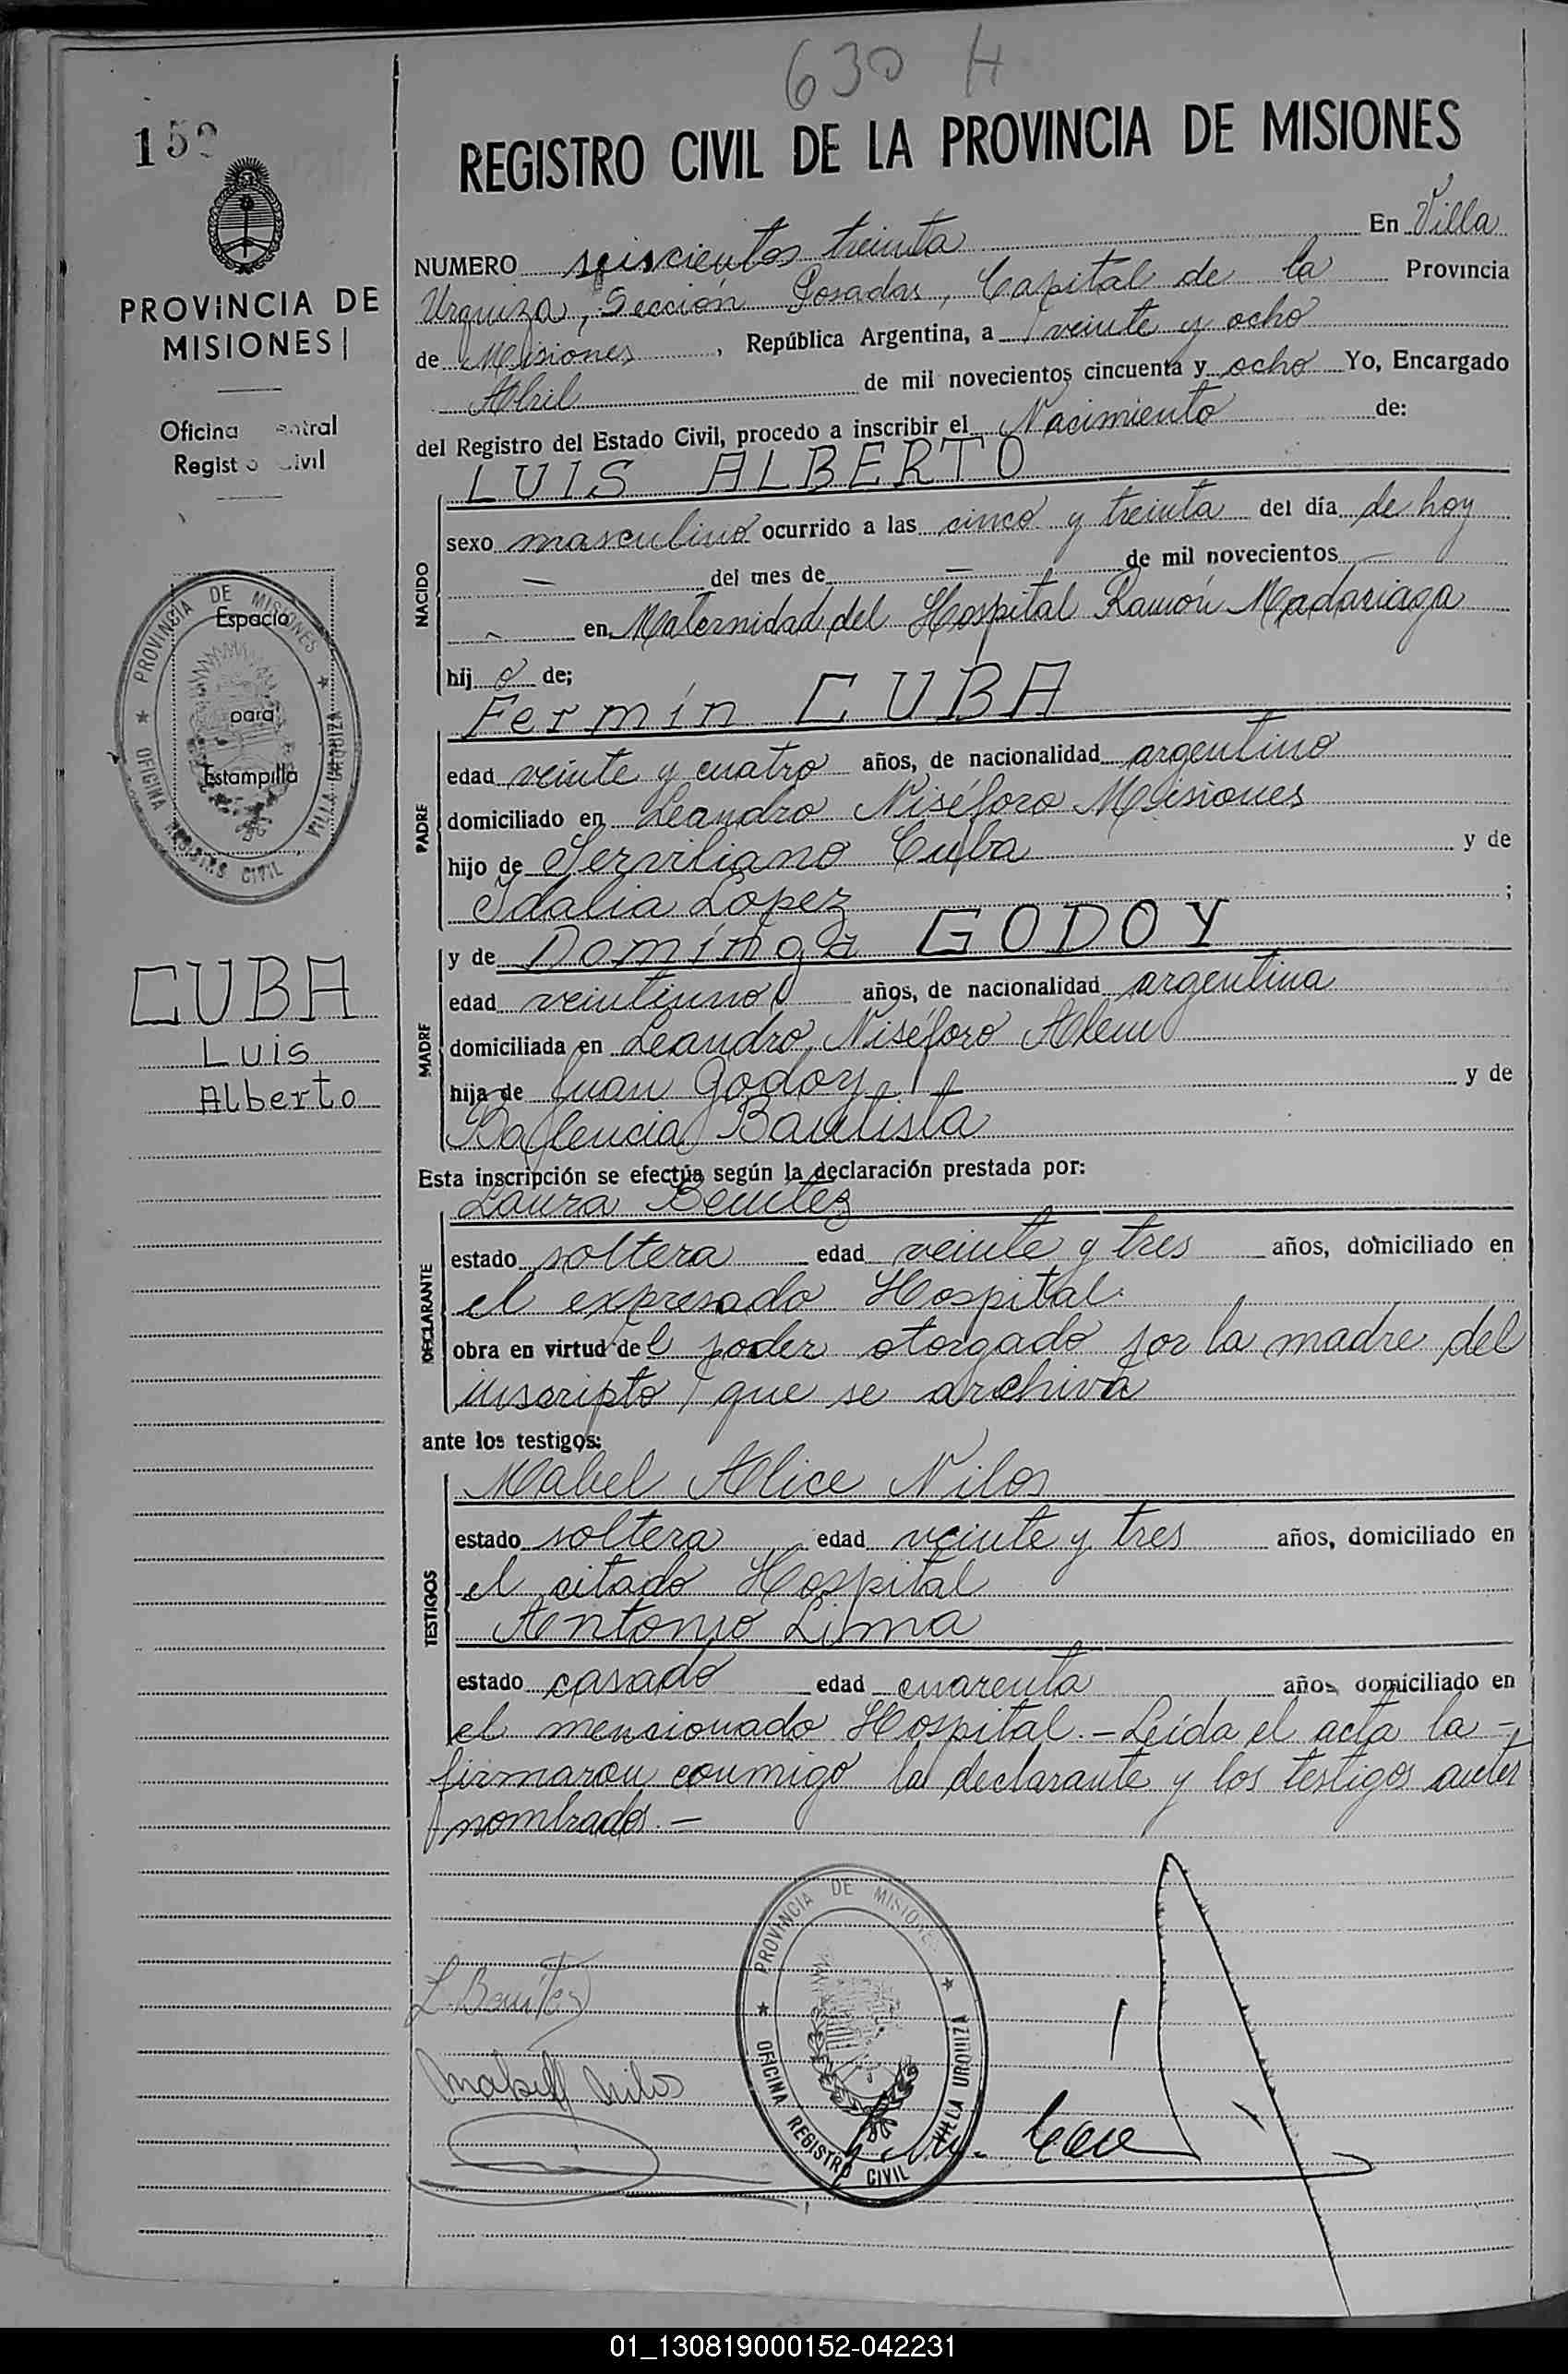 630 H
15
REGISTRO CIVIL DE LA PROVINCIA DE MISIONES
PROVINCIA DE
MISIONES
Oficina entral
Regist o ivil
PROVINCIA DE MISIONES
OFICINA REGISTRO CIVIL
VILLA URQUIZA
Espacio
para
Estampilla
CUBA
Luis
Alberto
NUMERO seiscientos treinta En Villa
Urquiza, Sección Posadas, Capital de la Provincia
de Misiones, República Argentina, a veinte y ocho
Abril de mil novecientos cincuenta y ocho Yo, Encargado
del Registro del Estado Civil, procedo a inscribir el Nacimiento de:
LUIS ALBERTO
NACIDO
sexo masculino ocurrido a las cinco y treinta del día de hoy
— del mes de — de mil novecientos —
— en Maternidad del Hospital Ramón Madariaga
hij o de;
Fermín CUBA
PADRE
edad veinte y cuatro años, de nacionalidad argentino
domiciliado en Leandro Niséforo Misiones
hijo de Serviliano Cuba y de
Idalia López ;
y de Domínga GODOY
MADRE
edad veintiuno años, de nacionalidad argentina
domiciliada en Leandro Niséforo Alem
hija de Juan Godoy y de
Ballencia Bautista
Esta inscripción se efectúa según la declaración prestada por:
Laura Benítez
DECLARANTE
estado soltera edad veinte y tres años, domiciliado en
el expresado Hospital.
obra en virtud de l poder otorgado por la madre del
inscripto, que se archiva
ante los testigos:
Mabel Alice Nilos
TESTIGOS
estado soltera edad veinte y tres años, domiciliado en
el citado Hospital
Antonio Lima
estado casado edad cuarenta años domiciliado en
el mencionado Hospital.- Leída el acta la -
firmaron conmigo la declarante y los testigos antes
nombrados.-
PROVINCIA DE MISIONES
OFICINA REGISTRO CIVIL
VILLA URQUIZA
L. Benítez
Mabel Nilos
01_130819000152-042231